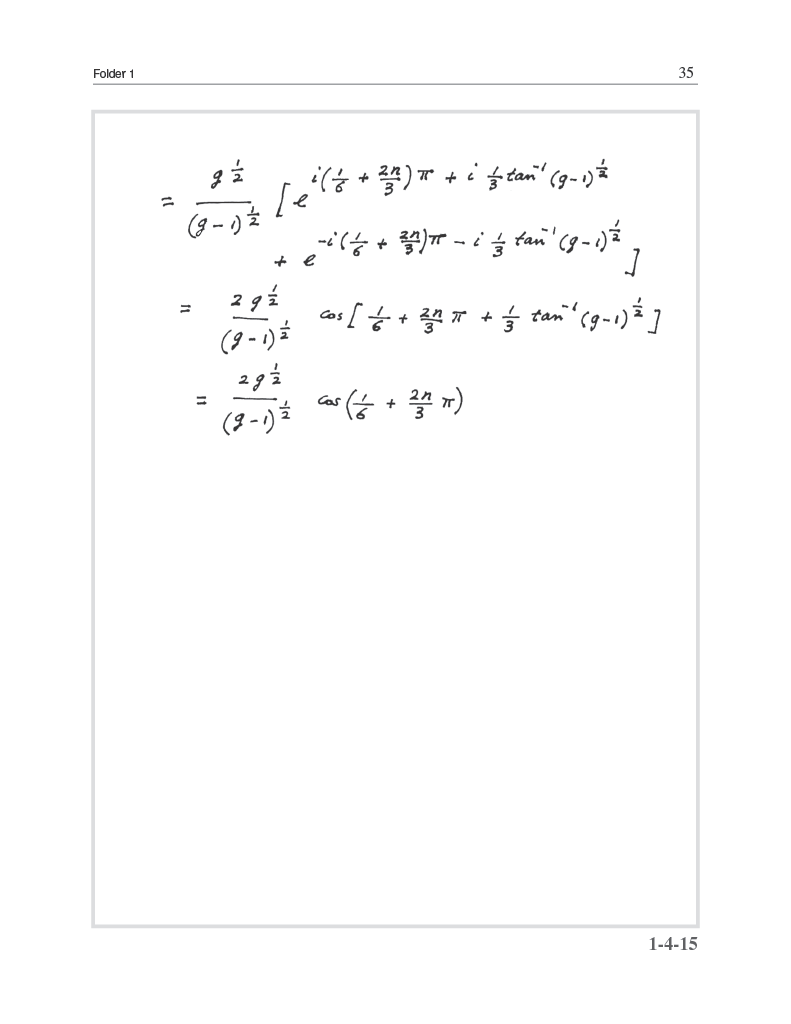 Folder 1 35
= g^{1/2} / (g-1)^{1/2} [ e^{i(1/6 + 2n/3)π + i 1/3 tan^{-1}(g-1)^{1/2}}
+ e^{-i(1/6 + 2n/3)π - i 1/3 tan^{-1}(g-1)^{1/2}} ]
= 2g^{1/2} / (g-1)^{1/2} cos[ 1/6 + 2n/3 π + 1/3 tan^{-1}(g-1)^{1/2} ]
= 2g^{1/2} / (g-1)^{1/2} cos(1/6 + 2n/3 π)
1-4-15